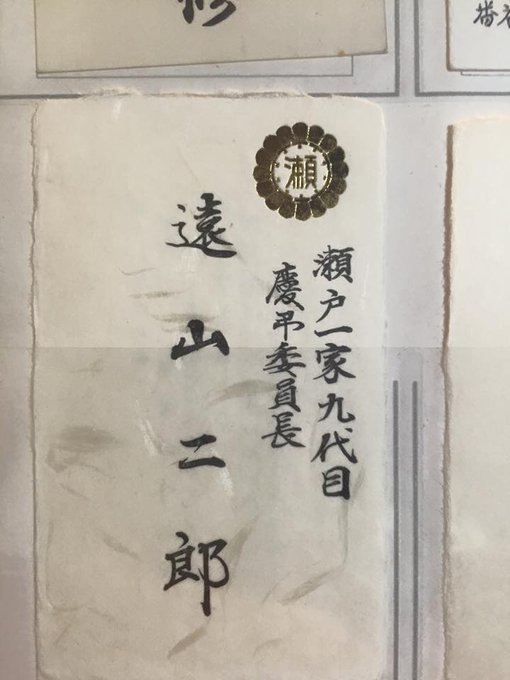 瀬
瀬戸一家九代目
慶弔委員長
遠山二郎